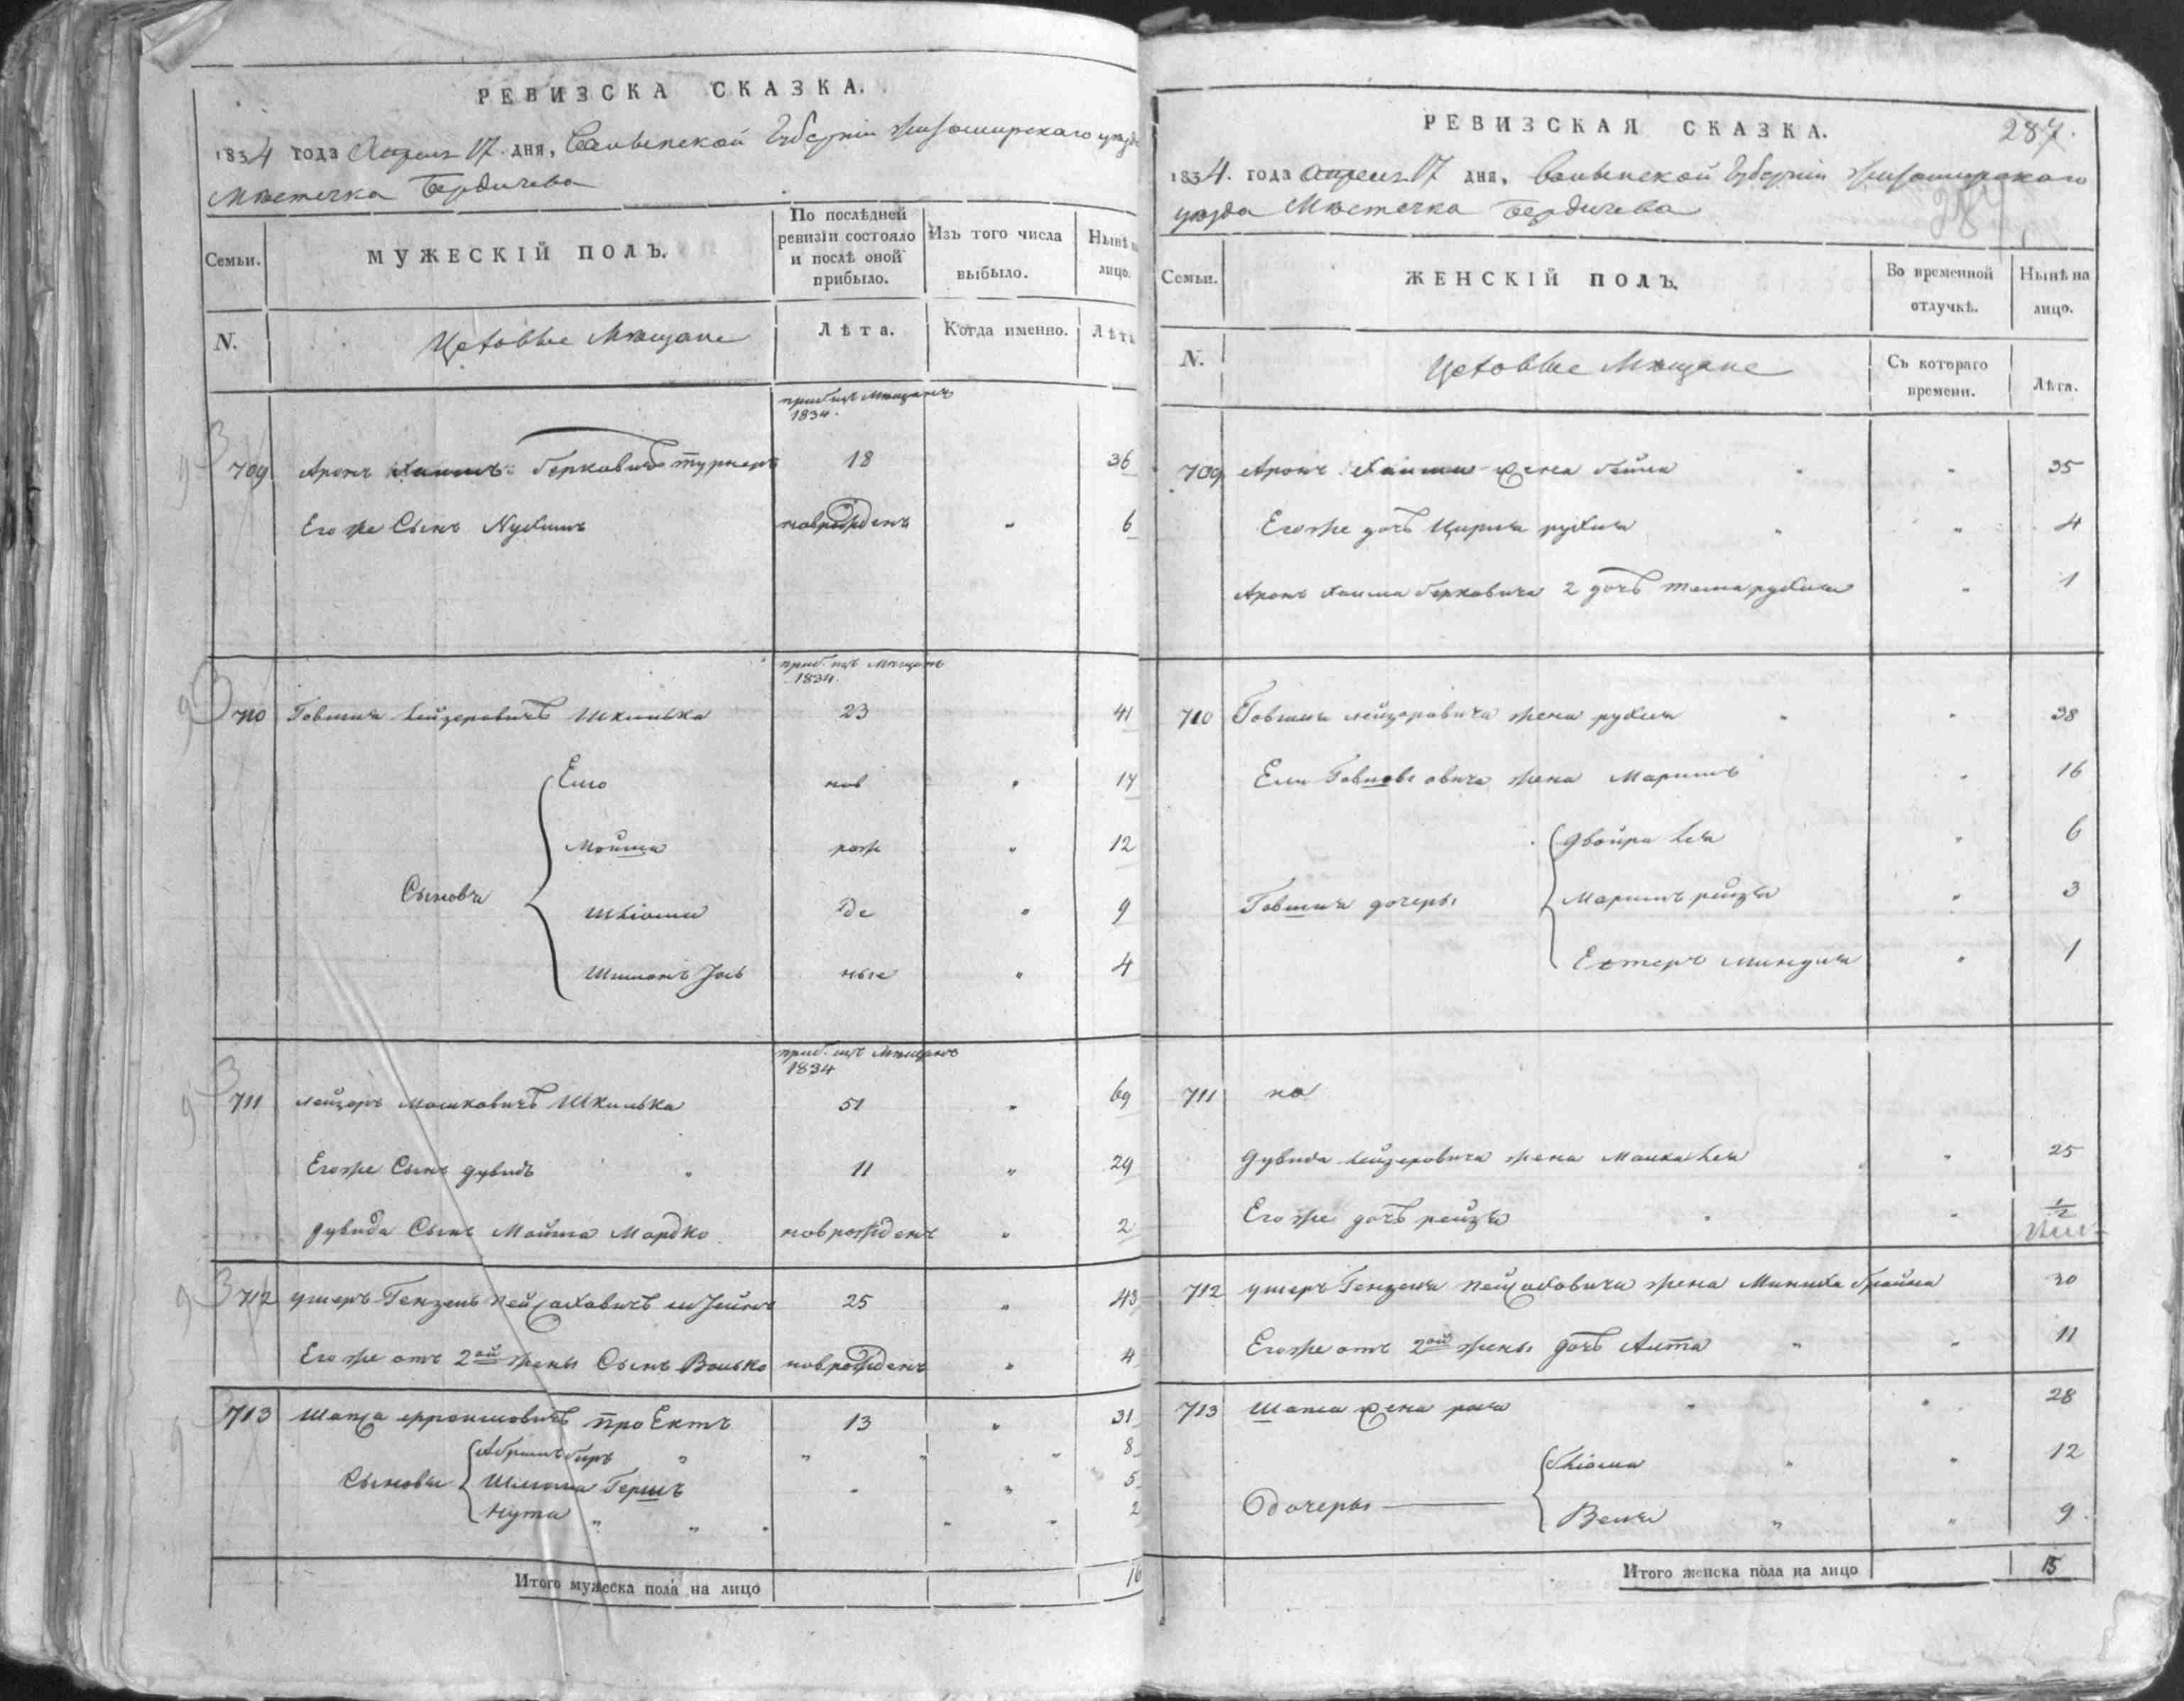 РЕВИЗСКА СКАЗКА.
1834 года Апреля 17 дня, Волынской Губерніи Житомирскаго уезда
Местечка Бердичева
Семьи.
МУЖЕСКІЙ ПОЛЪ.
По послѣдней ревизіи состояло и послѣ оной прибыло.
Изъ того числа выбыло.
Нынѣ на лицо.
N.
Цеховые Мещане
Лѣта.
Когда именно.
Лѣта
приб изъ Мещанъ
1834.
709 Аронъ Хаимъ Берковичъ Турнеръ 18 36
Его же Сынъ Нухимъ новрожденъ " 6
приб. изъ Мещанъ
1834.
710 Говшия Лейзеровичъ Шкилька 23 41
Елио нов " 17
Мойша рож " 12
Сыновья
Шліома де " 9
Шимонъ Јось ные " 4
приб. изъ Мещанъ
1834
711 Лейзоръ Мошковичъ Шкилька 51 " 69
Его же Сынъ Дувидъ " 11 " 29
Дувида Сынъ Мойша Мордко новрожденъ " 2
712 Ушеръ Гензель Пейсаховичъ 25 " 43
Его же отъ 2ой жены Сынъ Волько новрожденъ " 4
713 Шапса Проектъ 13 " 31
Абрамъ Беръ " " " " 8
Сыновья Шліома Гершъ " " 5
Нута " " " " " 2
Итого мужеска пола на лицо 16
РЕВИЗСКАЯ СКАЗКА.
287.
1834. года Апреля 17 дня, Волынской Губерніи Житомирскаго
уезда Местечка Бердичева
Семьи.
ЖЕНСКІЙ ПОЛЪ.
Во временной отлучкѣ.
Нынѣ на лицо.
N.
Цеховые Мещане
Съ котораго времени.
Лѣта.
709 Аронъ Хаима жена Бейла " " 35
Его же дочь Цирля Рухля " " 4
Аронъ Хаима Берковича 2 дочь Рухля " 1
710 Говшии Лейзоровича жена Рухля " " 38
Ели Говшовича жена Маримъ " 16
Двойра Лея " 6
Говшия дочеры Маримъ Рейзя " 3
Естеръ Миндля " 1
711 но
Дувида Лейзеровича жена Малка Лея " 25
Его же дочь Рейзя " " 1/2
712 Ушеръ Гензеля Пейсаховича жена Миниха Брайна 30
Его же отъ 2ой жены дочь Алта " " 11
713 Шапса жена Рося " " 28
Бліома " " 12
Дочеры
Веля " " 9
Итого женска пола на лицо 15